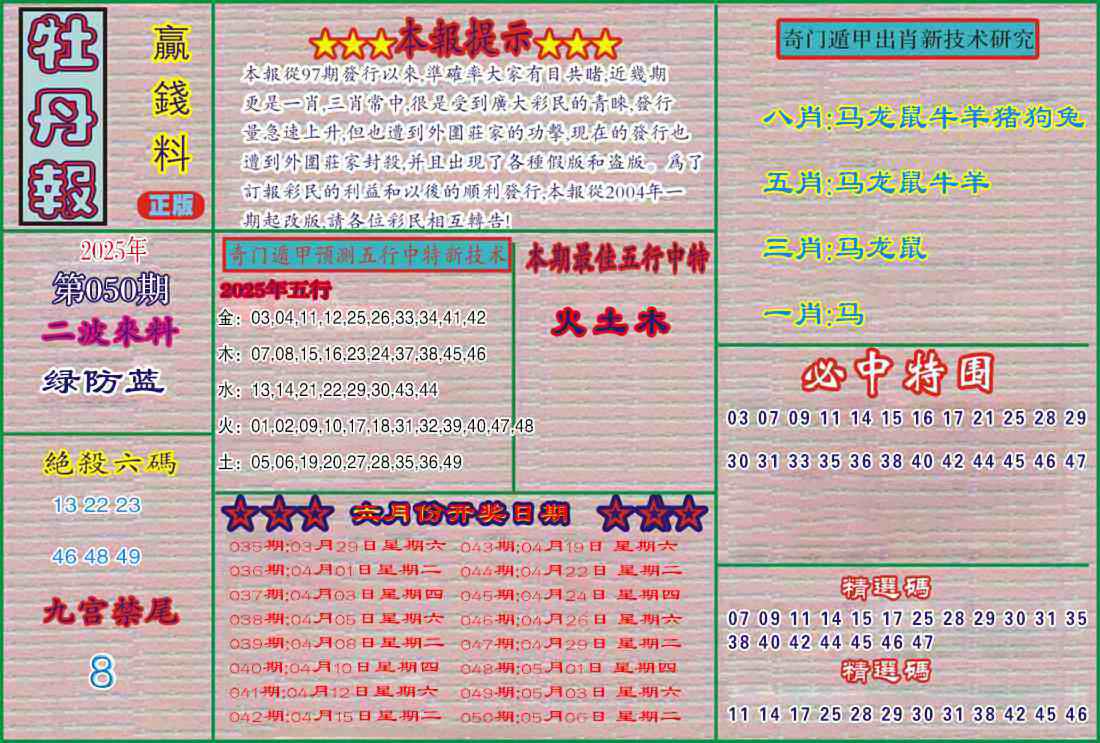 牡丹報
贏錢料
正版
2025年
第050期
二波來料
绿防蓝
絕殺六碼
13 22 23
46 48 49
九宫禁尾
8
★★★本報提示★★★
本報從97期發行以來,準確率大家有目共睹,近幾期
更是一肖,三肖常中,很是受到廣大彩民的青睞,發行
量急速上升,但也遭到外圍莊家的功擊,現在的發行也
遭到外圍莊家封殺,并且出現了各種假版和盗版。爲了
訂報彩民的利益和以後的順利發行,本報從2004年一
期起改版,請各位彩民相互轉告!
奇门遁甲预测五行中特新技术
2025年五行
金：03,04,11,12,25,26,33,34,41,42
木：07,08,15,16,23,24,37,38,45,46
水：13,14,21,22,29,30,43,44
火：01,02,09,10,17,18,31,32,39,40,47,48
土：05,06,19,20,27,28,35,36,49
本期最佳五行中特
火土木
★★★ 六月份开奖日期 ★★★
035期:03月29日星期六 043期:04月19日 星期六
036期:04月01日星期二 044期:04月22日 星期二
037期:04月03日星期四 045期:04月24日 星期四
038期:04月05日星期六 046期:04月26日 星期六
039期:04月08日星期二 047期:04月29日 星期二
040期:04月10日星期四 048期:05月01日 星期四
041期:04月12日星期六 049期:05月03日 星期六
042期:04月15日星期二 050期:05月06日 星期二
奇门遁甲出肖新技术研究
八肖:马龙鼠牛羊猪狗兔
五肖:马龙鼠牛羊
三肖:马龙鼠
一肖:马
必中特围
03 07 09 11 14 15 16 17 21 25 28 29
30 31 33 35 36 38 40 42 44 45 46 47
精選碼
07 09 11 14 15 17 25 28 29 30 31 35
38 40 42 44 45 46 47
精選碼
11 14 17 25 28 29 30 31 38 42 45 46